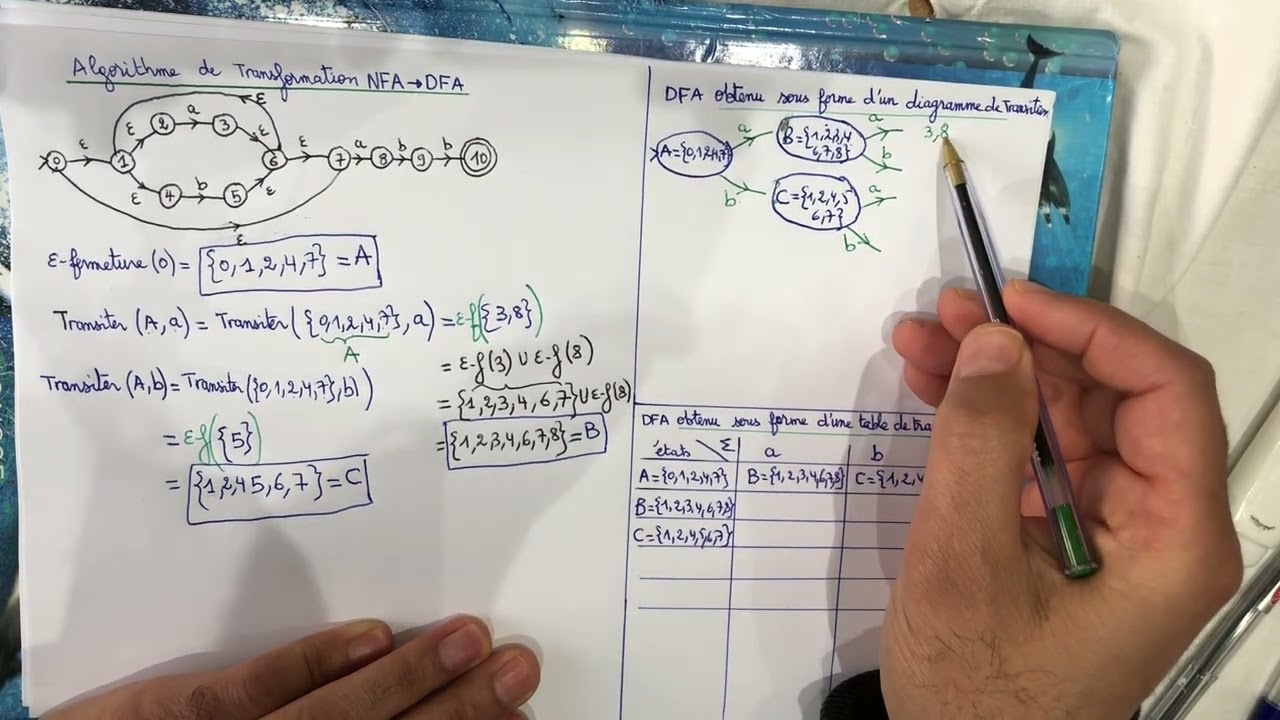 Algorithme de Transformation NFA→DFA
ε
a
ε ε
2 3
0 ε 1 6 ε 7 a 8 b 9 b 10
ε b ε
4 5
ε
ε-fermeture(0) = {0,1,2,4,7} = A
Transiter (A,a) = Transiter({0,1,2,4,7},a) = ε-f({3,8})
A
= ε-f(3) ∪ ε-f(8)
= {1,2,3,4,6,7}∪ε-f(8)
= {1,2,3,4,6,7,8} = B
Transiter (A,b) = Transiter({0,1,2,4,7},b)
= ε-f({5})
= {1,2,4,5,6,7} = C
DFA obtenu sous forme d'un diagramme de Transition
A={0,1,2,4,7}
a
b
B={1,2,3,4
6,7,8}
a
b
3,8
C={1,2,4,5
6,7}
a
b
DFA obtenu sous forme d'une table de tra
états Σ a b
A={0,1,2,4,7} B={1,2,3,4,6,7,8} C={1,2,4
B={1,2,3,4,6,7,8}
C={1,2,4,5,6,7}